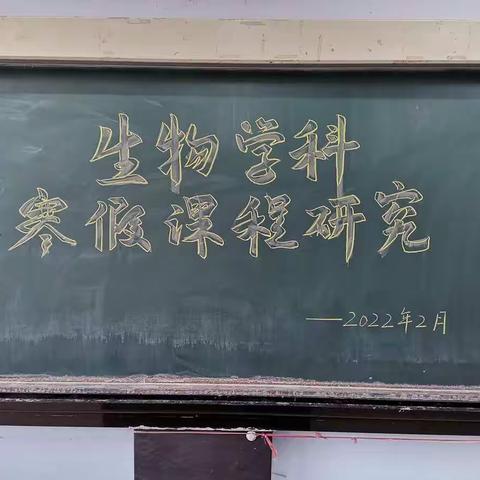 生物学科
寒假课程研究
——2022年2月